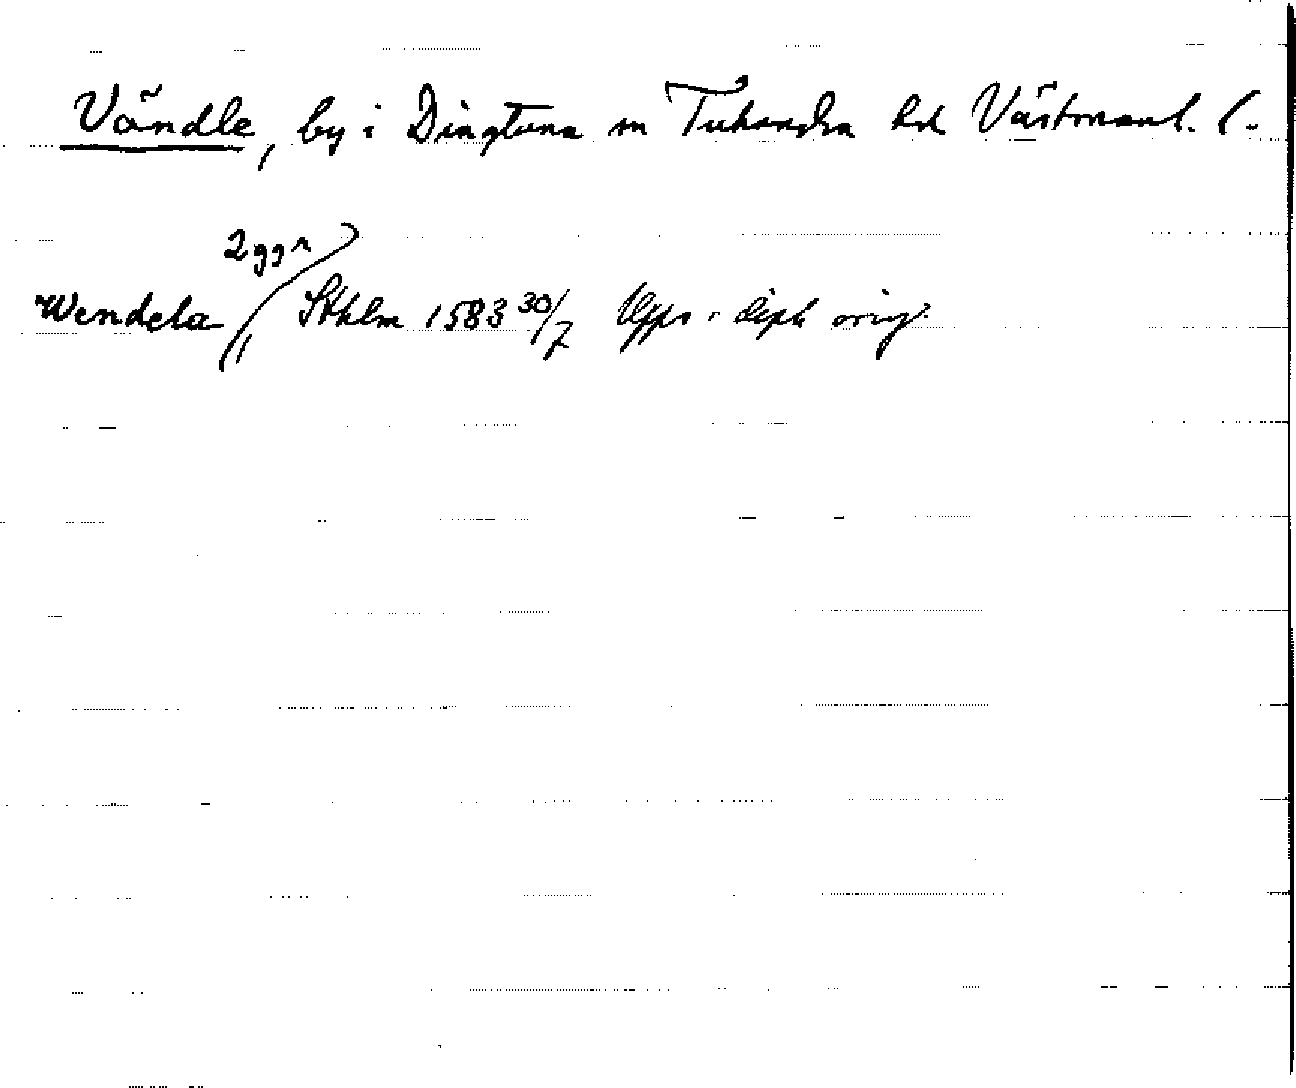 Vändle, by i Dingtuna sn Tuhundra hd Västmanl. l.
2 ggr
Wendela Sthlm 1583 30/7 Upps. dipl. orig.